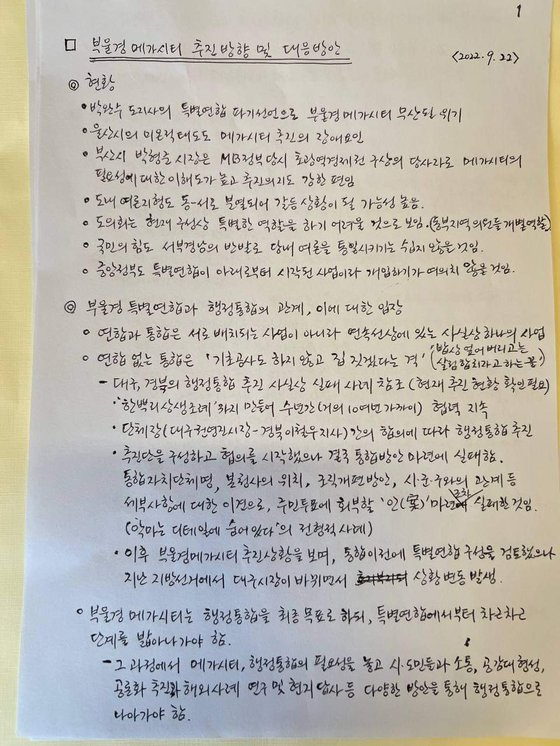 1
□ 부울경 메가시티 추진방향 및 대응방안
<2022. 9. 22>
◎ 현황
• 박완수 도지사의 특별연합 파기선언으로 부울경 메가시티 무산될 위기
• 울산시의 미온적 태도도 메가시티 추진의 장애요인
• 부산시 박형준 시장은 MB정부 당시 초광역경제권 구상의 당사자로 메가시티의
필요성에 대한 이해도가 높고 추진의지도 강한 편임
• 도내 여론지형도 동-서로 분열되어 갈등상황이 될 가능성 높음.
• 도의회는 현재 구성상 특별한 역할을 하기 어려울 것으로 보임. (동부지역 의원들 개별역할)
• 국민의힘도 서부경남의 반발로 당내 여론을 통일시키기는 수십지 않을 것임.
• 중앙정부도 특별연합이 아래로부터 시작된 사업이라 개입하기가 여의치 않을 것임.
◎ 부울경 특별연합과 행정통합의 관계, 이에 대한 입장
• 연합과 통합은 서로 배치되는 사업이 아니라 연속선상에 있는 사실상 하나의 사업
• 연합 없는 통합은 '기초공사도 하지 않고 집 짓겠다는 격' (밥상 엎어버리고는
살림 합치자고 하는 꼴)
- 대구, 경북의 행정통합 추진 사실상 실패 사례 참조 (현재 추진현황 확인 필요)
• '한뿌리상생조례'까지 만들어 수년간(거의 10여년 가까이) 협력 지속
• 단체장(대구 권영진 시장-경북 이철우 지사)간의 합의에 따라 행정통합 추진
• 추진단을 구성하고 협의를 시작했으나 결국 통합방안 마련에 실패함.
통합자치단체명, 본청사의 위치, 조직개편방안, 시·군·구와의 관계 등
세부사항에 대한 이견으로, 주민투표에 회부할 '안(案)' 마련에 실패한 것임.
(악마는 디테일에 숨어있다'의 전형적 사례)
• 이후 부울경메가시티 추진상황을 보며, 통합 이전에 특별연합 구성을 검토했으나
지난 지방선거에서 대구시장이 바뀌면서 상황변동 발생.
• 부울경 메가시티는 행정통합을 최종목표로 하되, 특별연합에서부터 차근차근
단계를 밟아나가야 함.
- 그 과정에서 메가시티, 행정통합의 필요성을 놓고 시·도민들과 소통, 공감대 형성,
공론화 추진과 해외사례 연구 및 현지답사 등 다양한 방안을 통해 행정통합으로
나아가야 함.